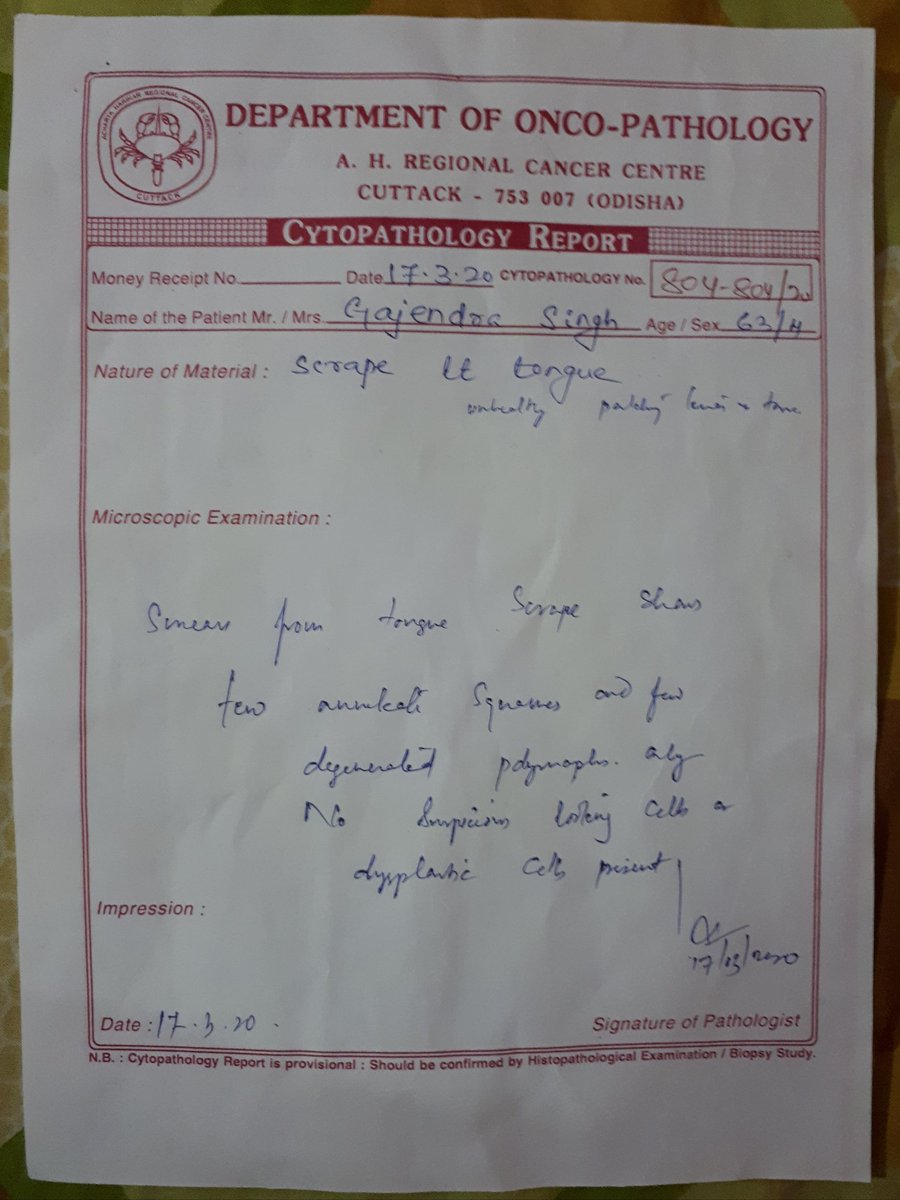 ACHARYA HARIHAR REGIONAL CANCER CENTRE
CUTTACK
DEPARTMENT OF ONCO-PATHOLOGY
A. H. REGIONAL CANCER CENTRE
CUTTACK - 753 007 (ODISHA)
CYTOPATHOLOGY REPORT
Money Receipt No. Date 17.3.20 CYTOPATHOLOGY No. 804-804/20
Name of the Patient Mr. / Mrs. Gajendra Singh Age / Sex 63/M
Nature of Material : Scrape Lt tongue
unhealthy
Microscopic Examination :
Smears from tongue Scrape Shows
few Squames and few
degenerated polymorphs. only
No Suspicious looking Cells or
dysplastic Cells present
Impression :
17/03/2020
Date : 17.3.20 .
Signature of Pathologist
N.B. : Cytopathology Report is provisional : Should be confirmed by Histopathological Examination / Biopsy Study.